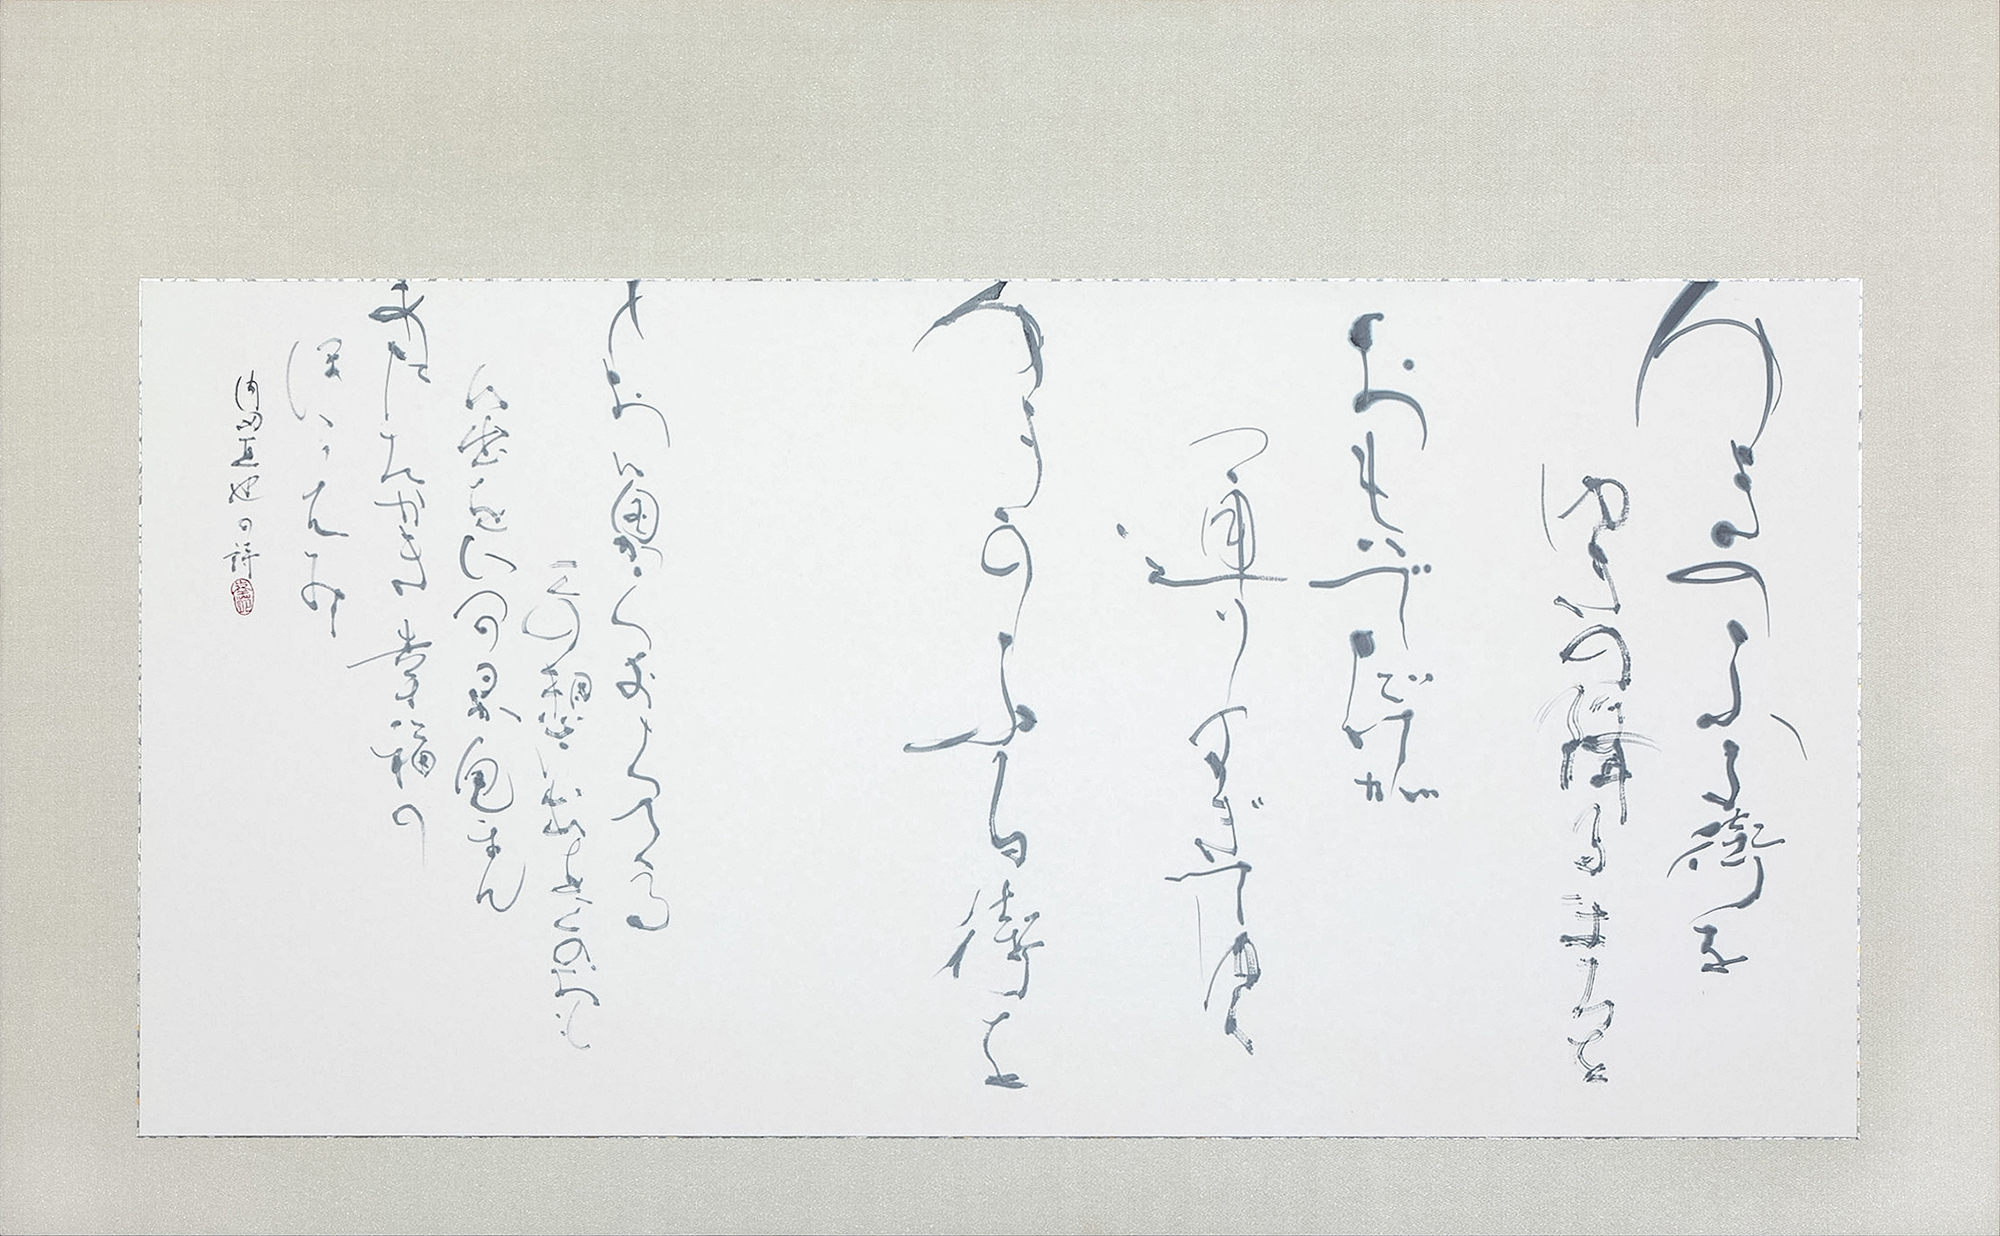 ゆきのふる街を
ゆきの降るまちを
おもいでだけが
通りすぎてゆく
ゆきのふる街を
とおい國からおちてくる
この想い出をこのおも
い出をいつの日か包まん
あたたかき幸福の
ほほえみ
内村直也の詩